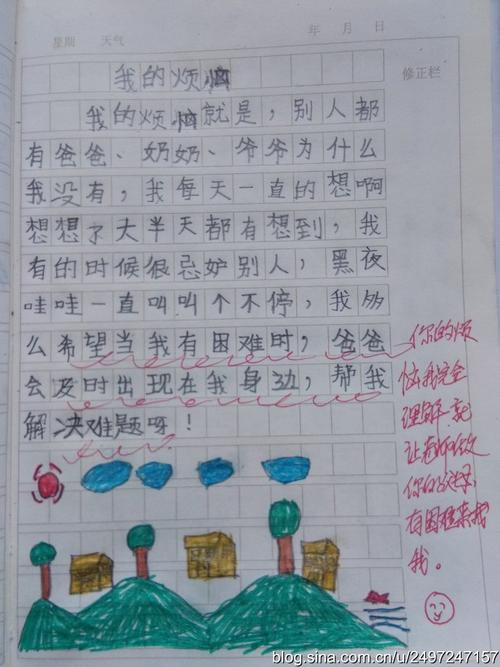 星期 天气 年 月 日
修正栏
我的烦恼
我的烦恼就是，别人都
有爸爸、奶奶、爷爷为什么
我没有，我每天一直的想啊
想想了大半天都有想到，我
有的时候很忌妒别人，黑夜
哇哇一直叫叫个不停，我多
么希望当我有困难时，爸爸
会及时出现在我身边，帮我
解决难题呀！
你的烦
恼我完全
理解，就
让老师做
你的
有困难来找
我。
blog.sina.com.cn/u/2497247157